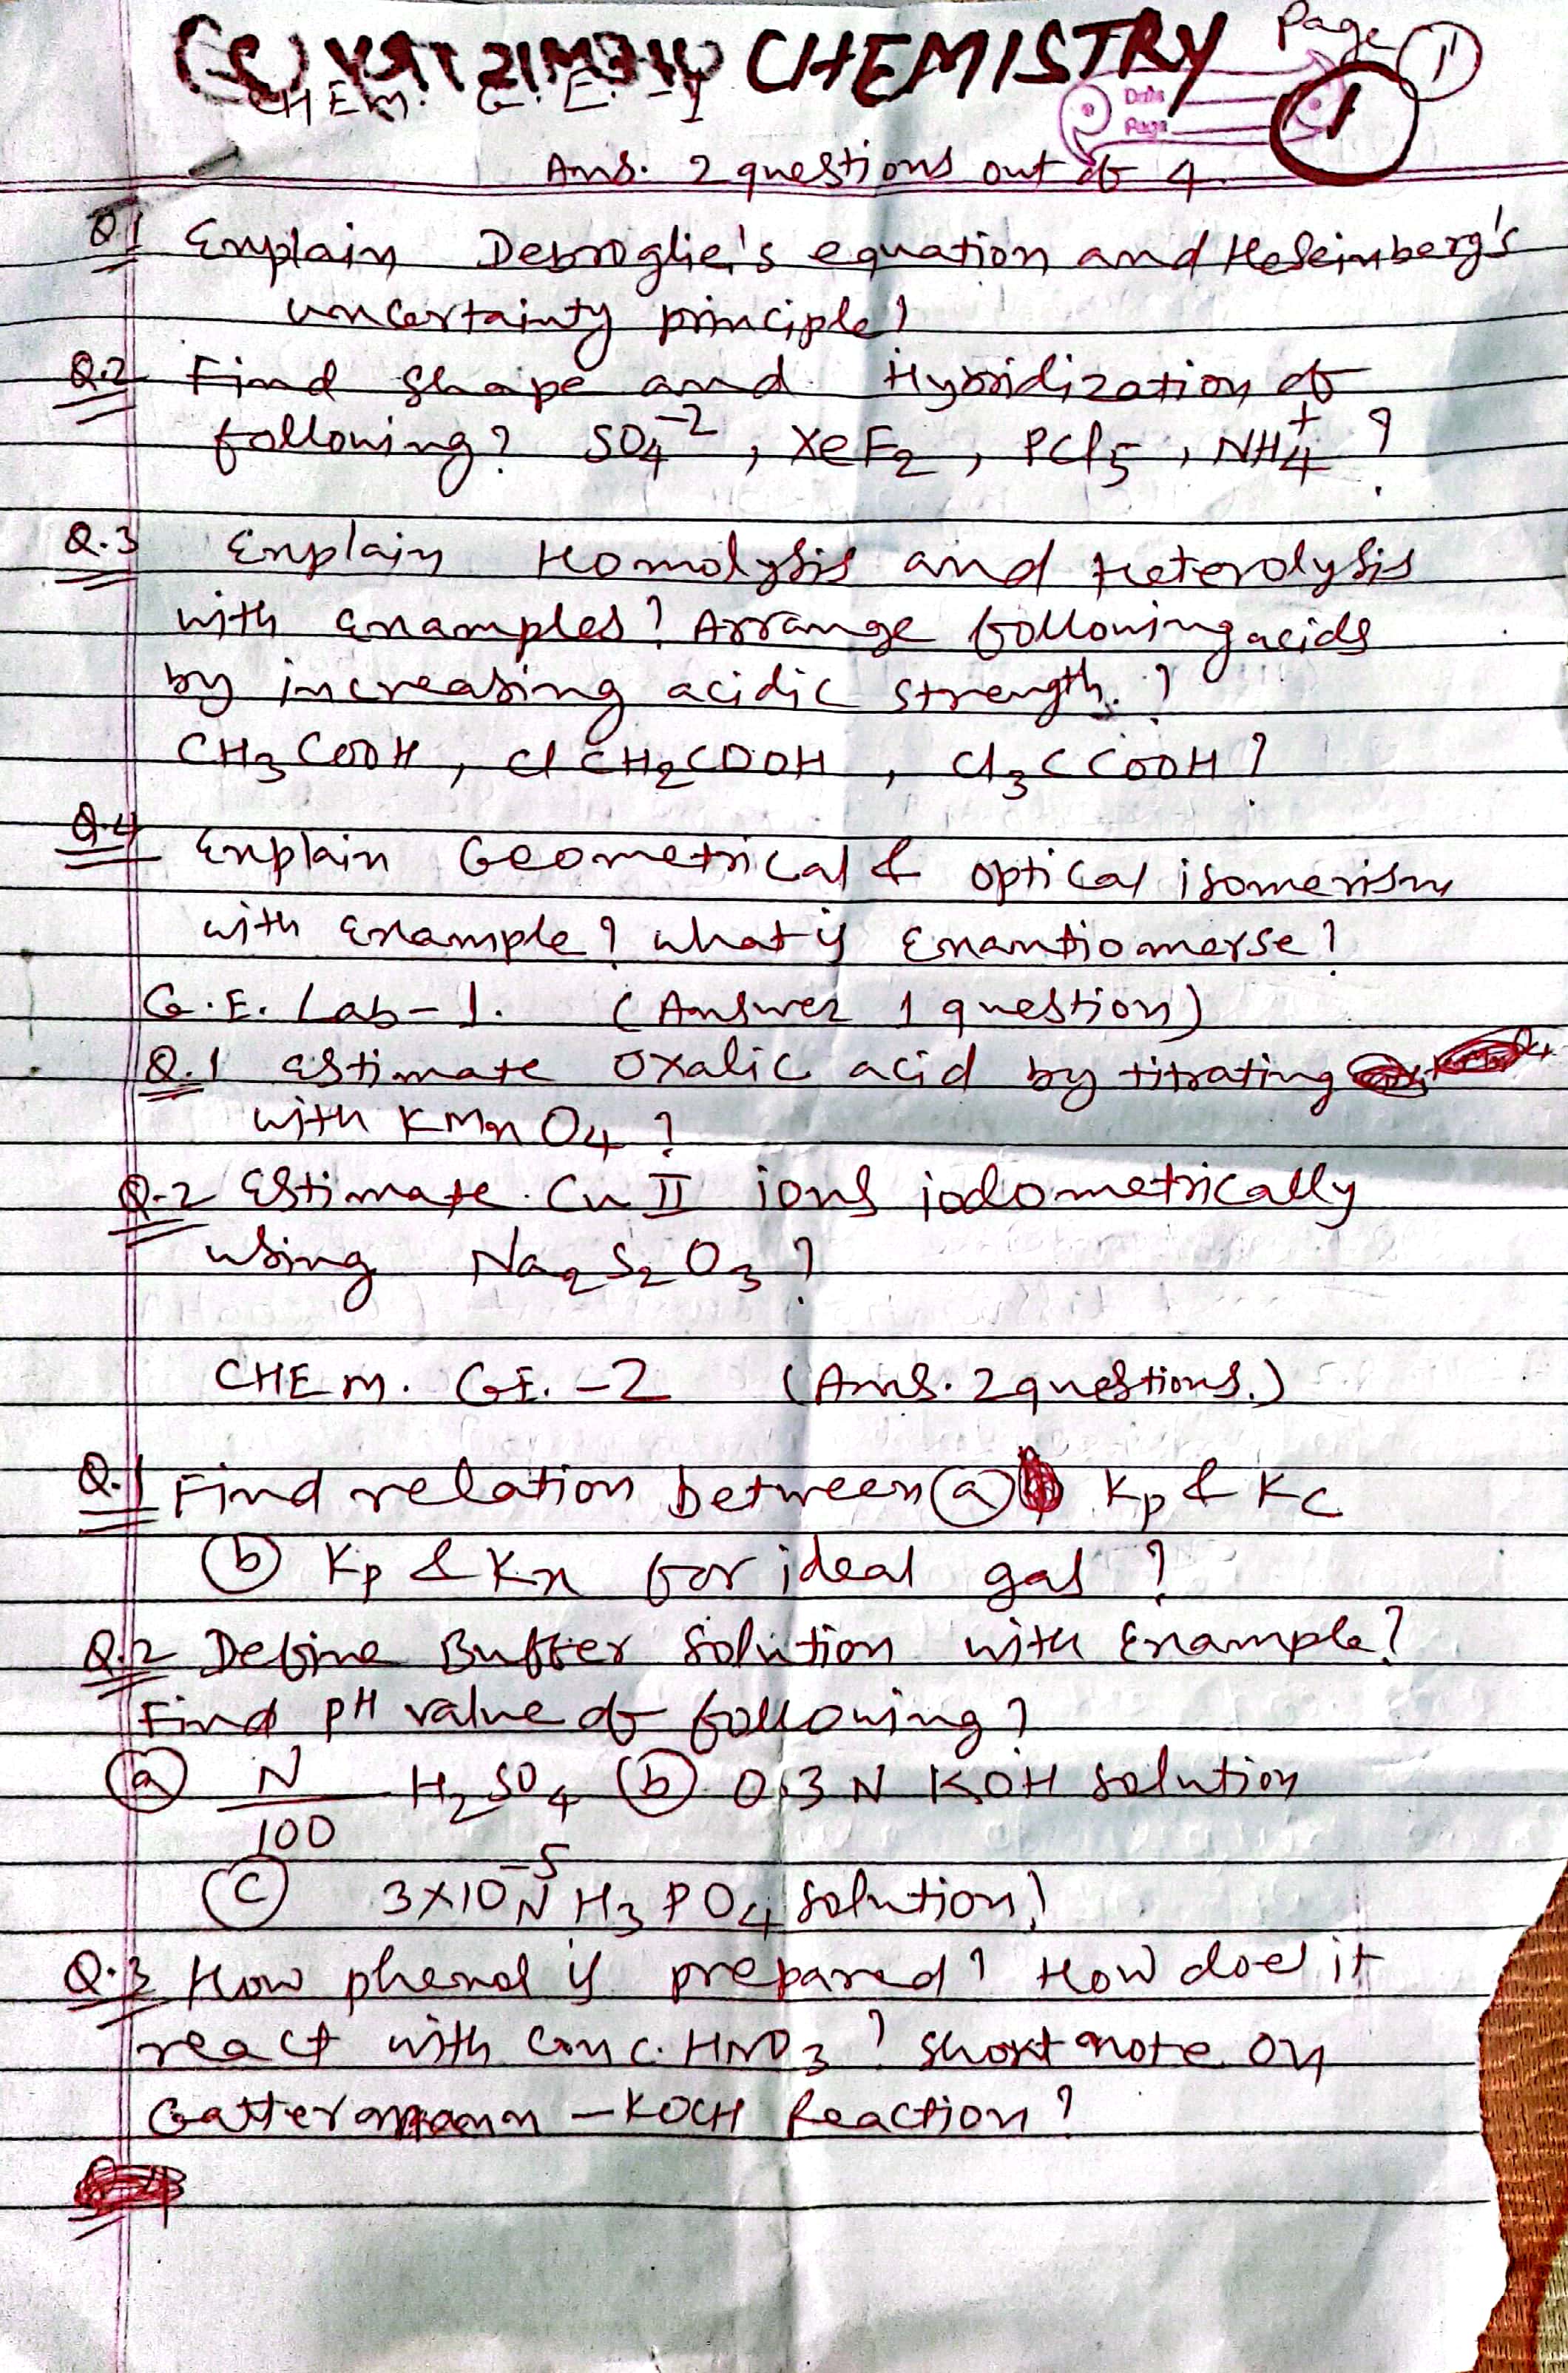 CHEMISTRY Page 1
CHEM. G.E. -1
Date
Page 1
Ans. 2 questions out of 4
Q.1 Explain Debroglie's equation and Heseinberg's
uncertainty principle?
Q.2 Find shape and Hybridization of
following? SO4-2, XeF2, PCl5, NH4+ ?
Q.3 Explain Homolysis and Heterolysis
with examples? Arrange following acids
by increasing acidic strength. ?
CH3COOH, ClCH2COOH, Cl3CCOOH?
Q.4 Explain Geometrical & optical isomerism
with Example? what is Enantiomerse?
G.E. Lab-1. (Answer 1 question)
Q.1 Estimate Oxalic acid by titrating
with KMnO4 ?
Q.2 Estimate Cu II ions iodometrically
using Na2S2O3 ?
CHEM. GE. -2 (Ans. 2 questions.)
Q.1 Find relation between (a) Kp & Kc
(b) Kp & Kx for ideal gas ?
Q.2 Define Buffer Solution with Example?
Find pH value of following?
(a) N/100 H2SO4 (b) 0.3 N KOH solution
(c) 3×10-5 N H3PO4 solution?
Q.3 How phenol is prepared? How does it
react with Conc. HNO3 ? Short note on
Gattermann -KOCH Reaction?